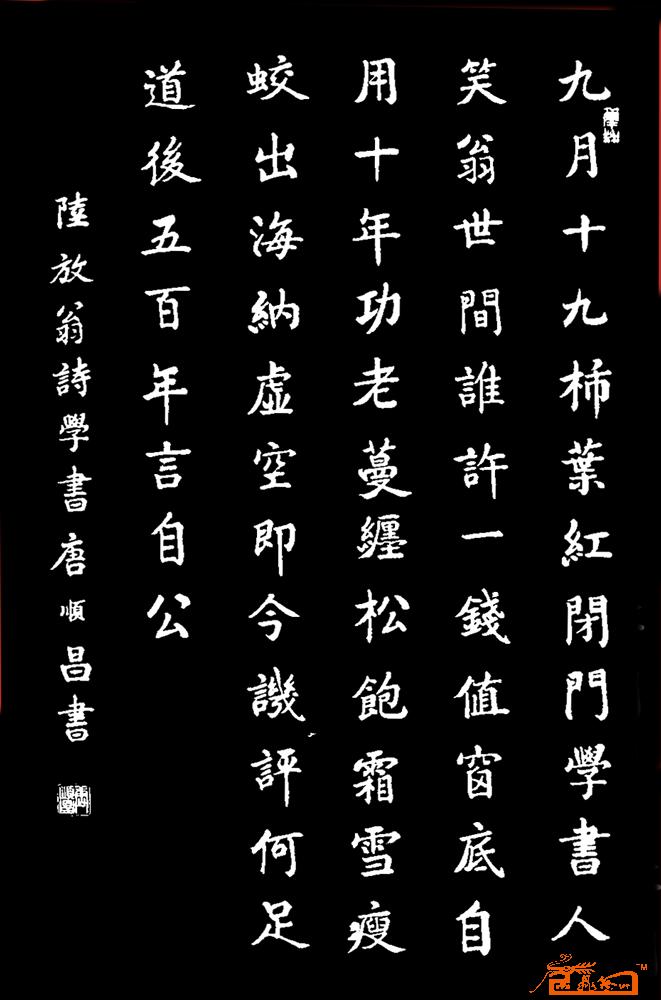 九月十九柿葉紅閉門學書人
笑翁世間誰許一錢值窗底自
用十年功老蔓纏松飽霜雪瘦
蛟出海納虛空即今譏評何足
道後五百年言自公
陸放翁詩學書唐順昌書